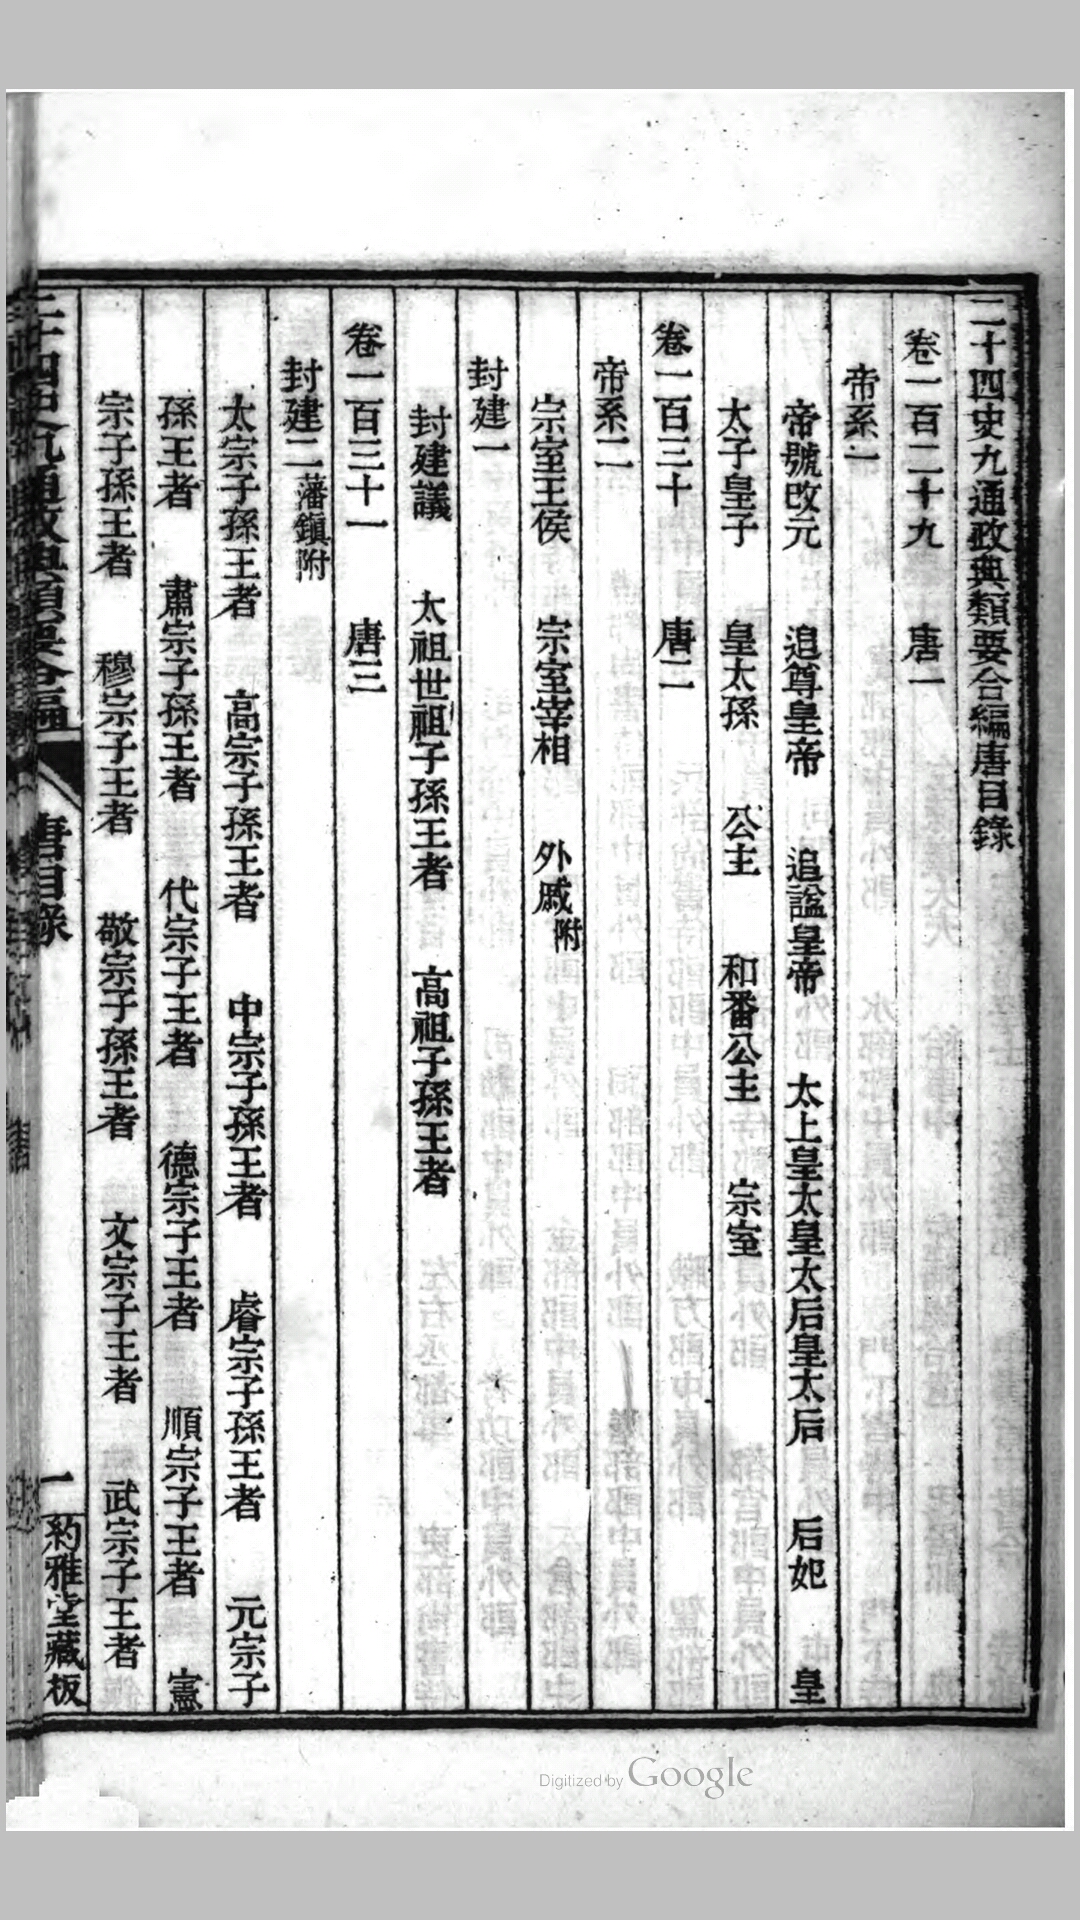 二十四史九通政典類要合編唐目錄
卷一百二十九　唐一
帝系一
帝號改元　追尊皇帝　追諡皇帝　太上皇太皇太后皇太后　后妃　皇
太子皇子　皇太孫　公主　和番公主　宗室
卷一百三十　唐二
帝系二
宗室王侯　宗室宰相　外戚附
封建一
封建議　太祖世祖子孫王者　高祖子孫王者
卷一百三十一　唐三
封建二藩鎭附
太宗子孫王者　高宗子孫王者　中宗子孫王者　睿宗子孫王者　元宗子
孫王者　肅宗子孫王者　代宗子王者　德宗子王者　順宗子王者　憲
宗子孫王者　穆宗子王者　敬宗子孫王者　文宗子王者　武宗子王者
唐目錄　一　約雅堂藏板
Digitized by Google